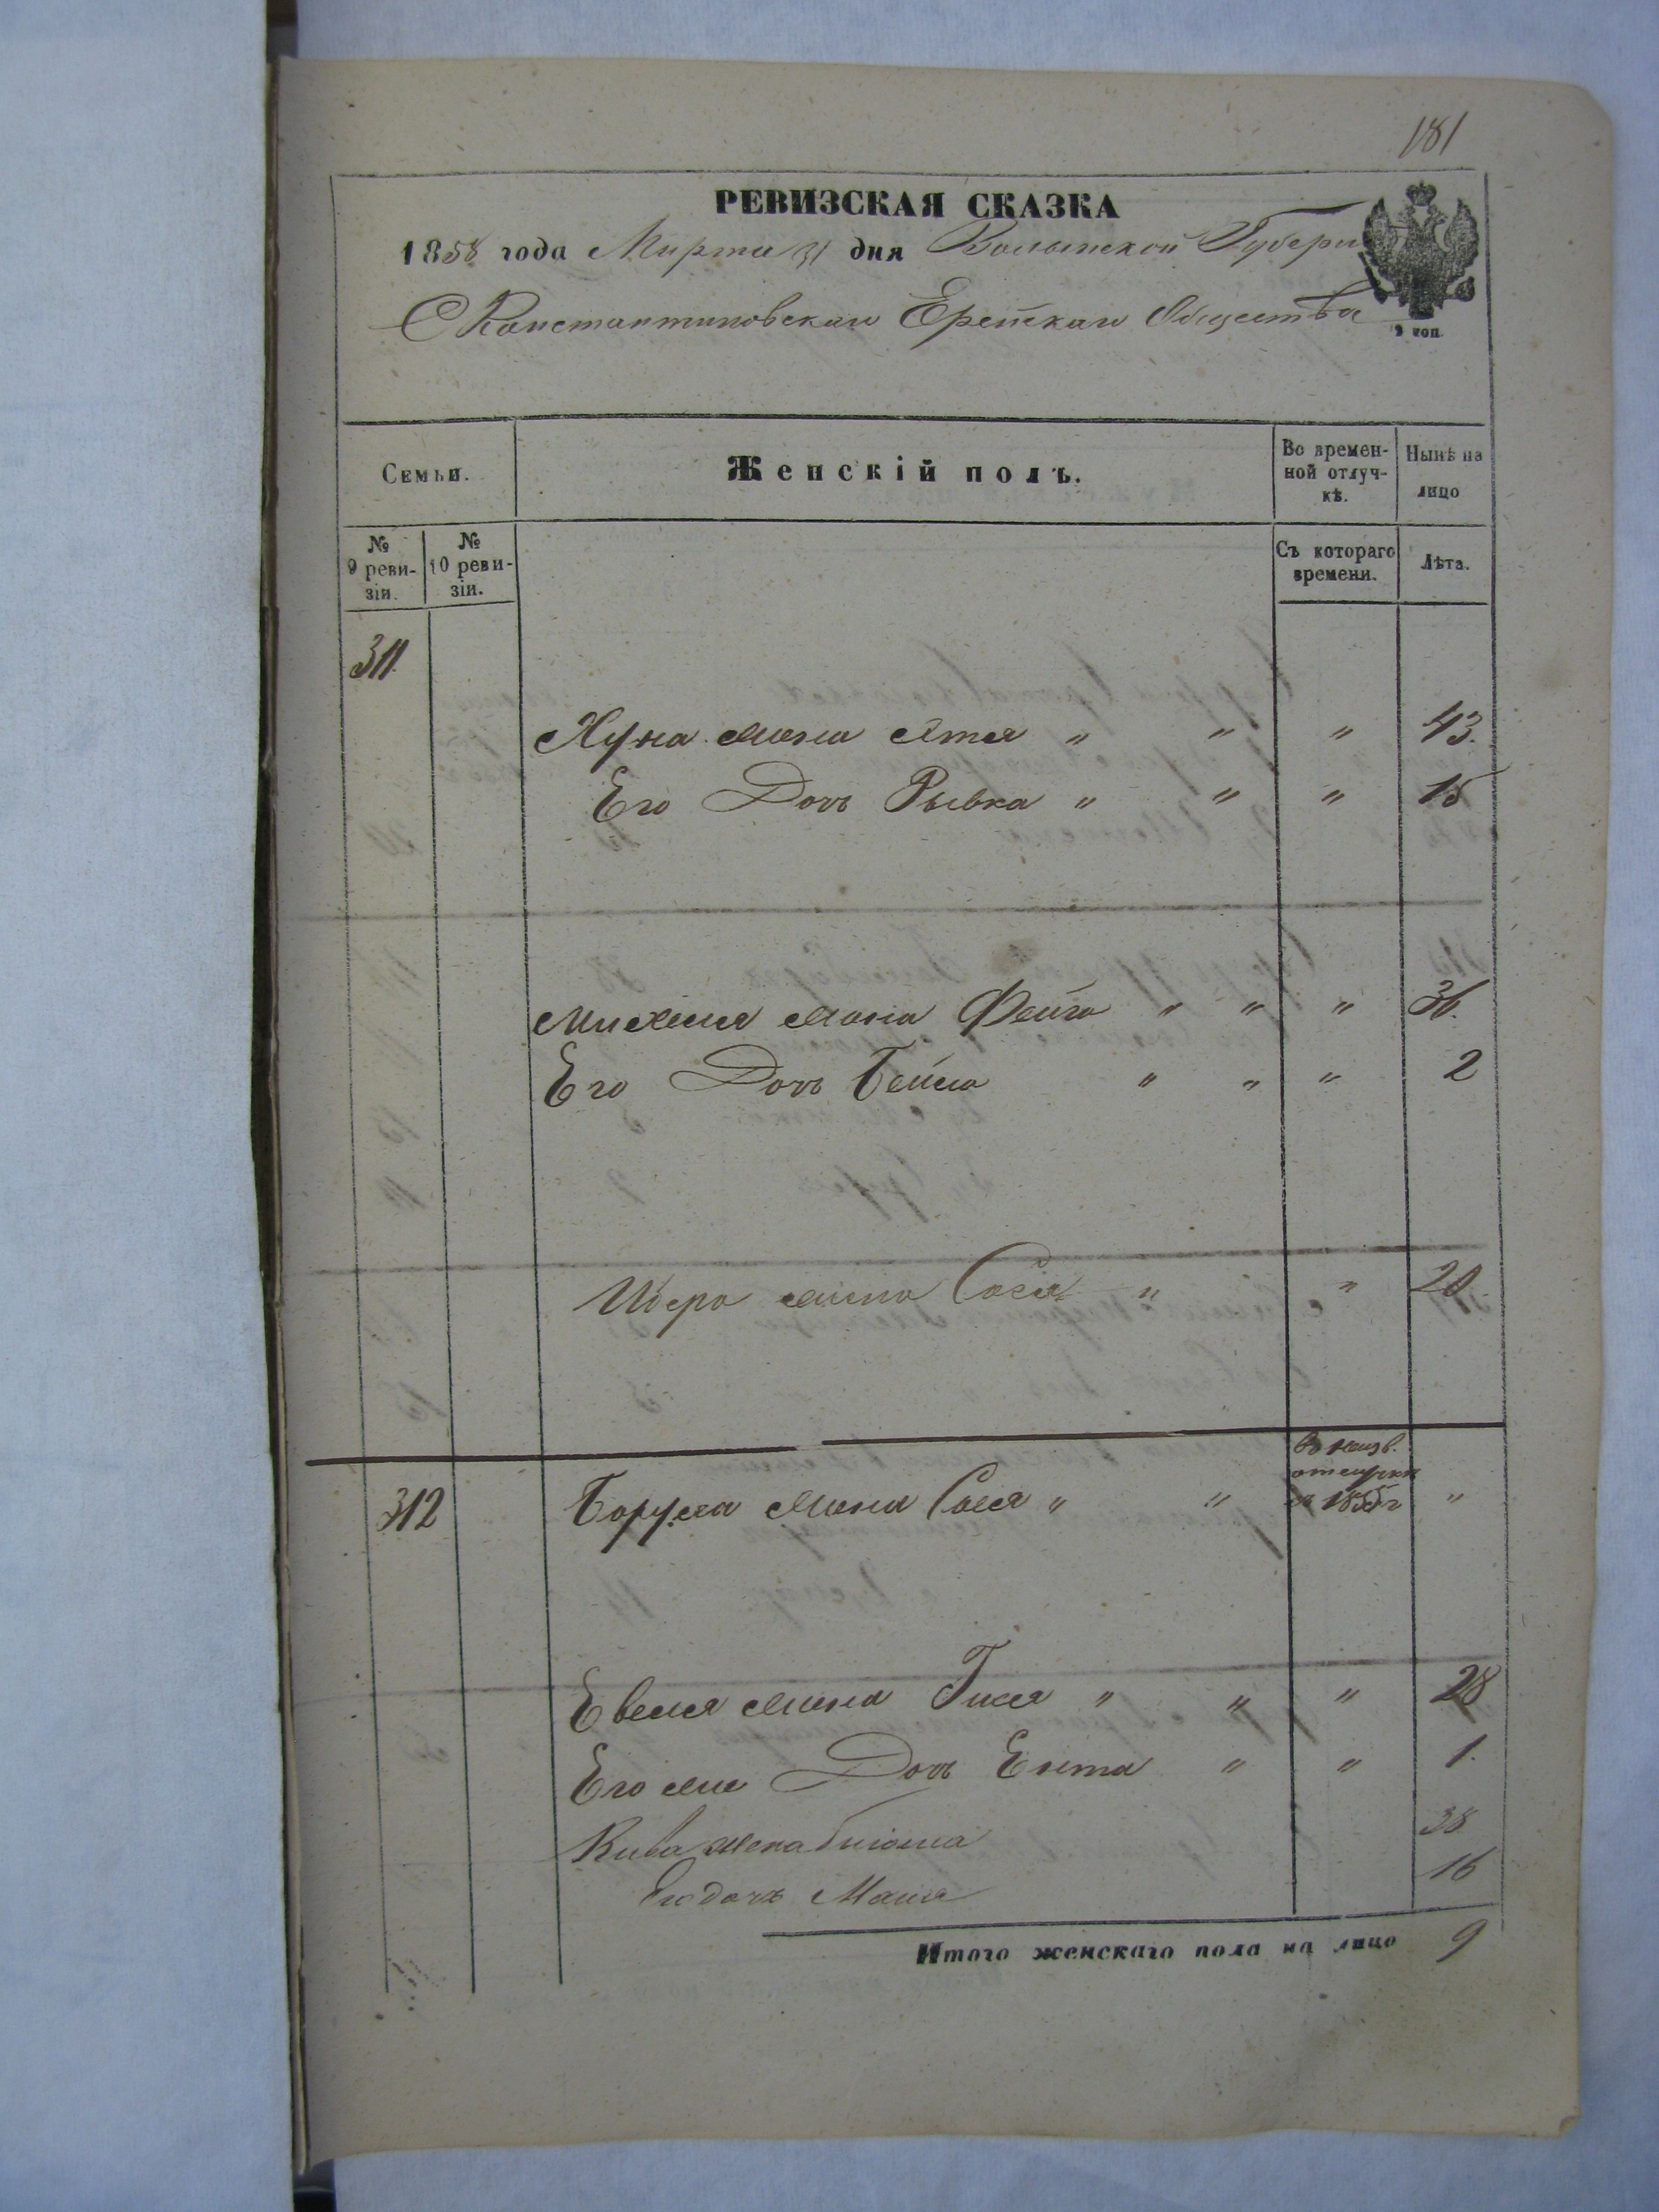 181
РЕВИЗСКАЯ СКАЗКА
1858 года Марта 31 дня Волынской Губерн
СКонстантиновскаго Еврейскаго Общества
9 коп.
Семьи.
Женскій полъ.
Во времен-
ной отлуч-
кѣ.
Нынѣ на
лицо
№
9 реви-
зіи.
№
10 реви-
зіи.
Съ котораго
времени.
Лѣта.
311.
жена " " " 43.
Его Дочь Рывка " " " 15
жена Фейга " " " 36.
Его Дочь Бейла " " " 2
жена " " 20.
312 Боруха жена Сося " " "
отлучки
1855 г
жена " " " 28
Его же Дочь Ента " " 1.
Кива жена 38
Его дочь 16
Итого женскаго пола на лицо 9